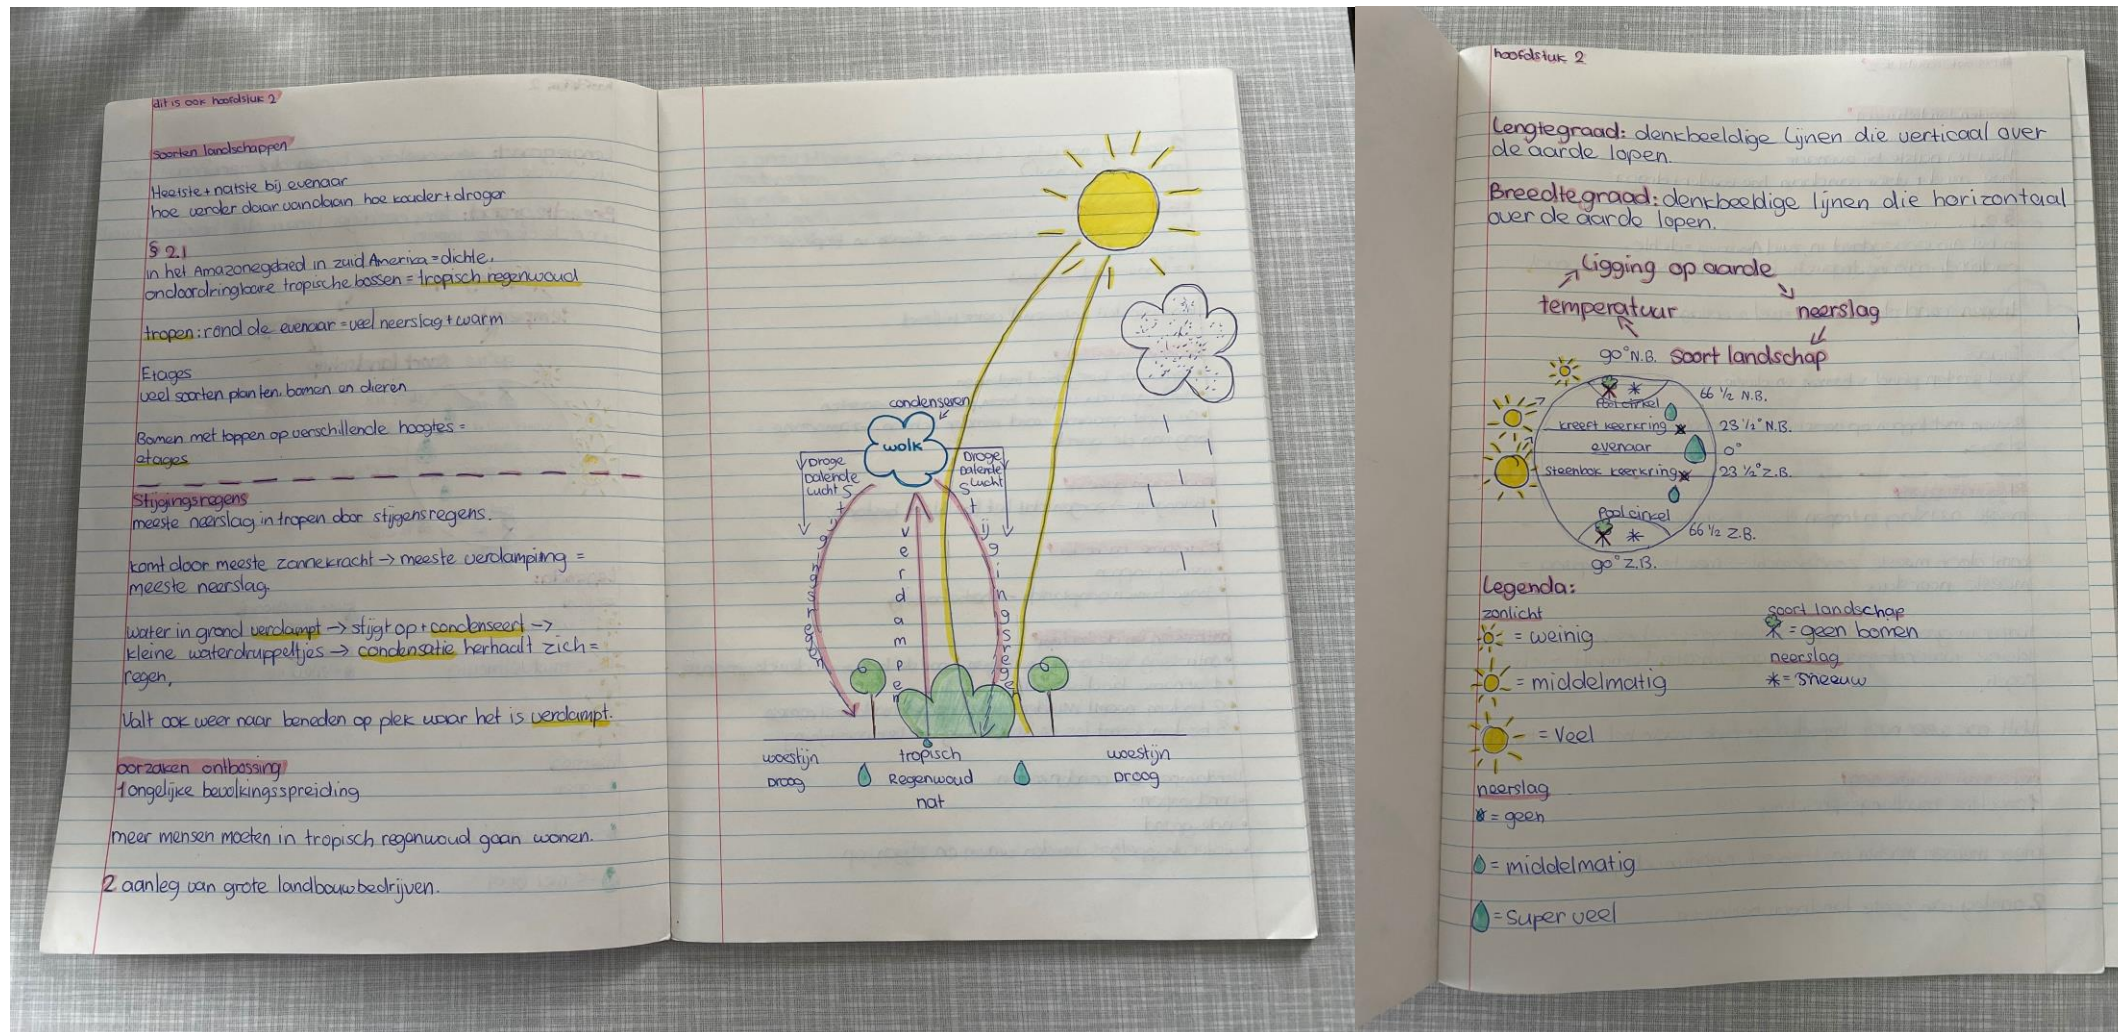 dit is ook hoofdstuk 2
soorten landschappen
Heetste + natste bij evenaar
hoe verder daar vandaan hoe kouder + droger
§ 2.1
in het Amazonegebied in zuid Amerika = dichte,
ondoordringbare tropische bossen = tropisch regenwoud
tropen: rond de evenaar = veel neerslag + warm
Etages
veel soorten planten, bomen en dieren
Bomen met toppen op verschillende hoogtes =
etages
Stijgingsregens
meeste neerslag in tropen door stijgensregens.
komt door meeste zonnekracht → meeste verdamping =
meeste neerslag.
water in grond verdampt → stijgt op + condenseert →
kleine waterdruppeltjes → condensatie herhaalt zich =
regen,
Valt ook weer naar beneden op plek waar het is verdampt.
oorzaken ontbossing
1 ongelijke bevolkingsspreiding
meer mensen moeten in tropisch regenwoud gaan wonen.
2 aanleg van grote landbouwbedrijven.
condenseren
wolk
Droge
Dalende
Lucht
Droge
Dalende
Lucht
Stijgingsregen
verdampen
Stijgingsregen
woestijn
Droog
tropisch
Regenwoud
nat
woestijn
Droog
hoofdstuk 2
Lengtegraad: denkbeeldige lijnen die verticaal over
de aarde lopen.
Breedtegraad: denkbeeldige lijnen die horizontaal
over de aarde lopen.
Ligging op aarde
temperatuur neerslag
90° N.B. soort landschap
66 1/2 N.B.
Poolcirkel
kreeft keerkring 23 1/2° N.B.
evenaar 0°
Steenbok keerkring 23 1/2° Z.B.
Poolcirkel
66 1/2 Z.B.
90° Z.B.
Legenda:
zonlicht
= weinig
= middelmatig
= Veel
neerslag
= geen
= middelmatig
= Super veel
soort landschap
= geen bomen
neerslag
* = sneeuw